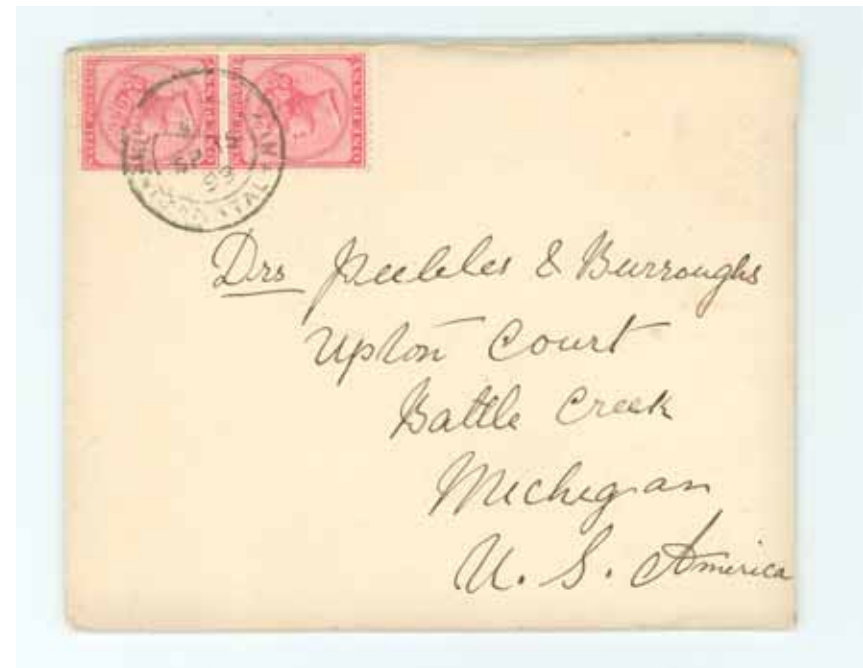 Drs Peebles & Burroughs
Upton Court
Battle Creek
Michegan
U. S. America